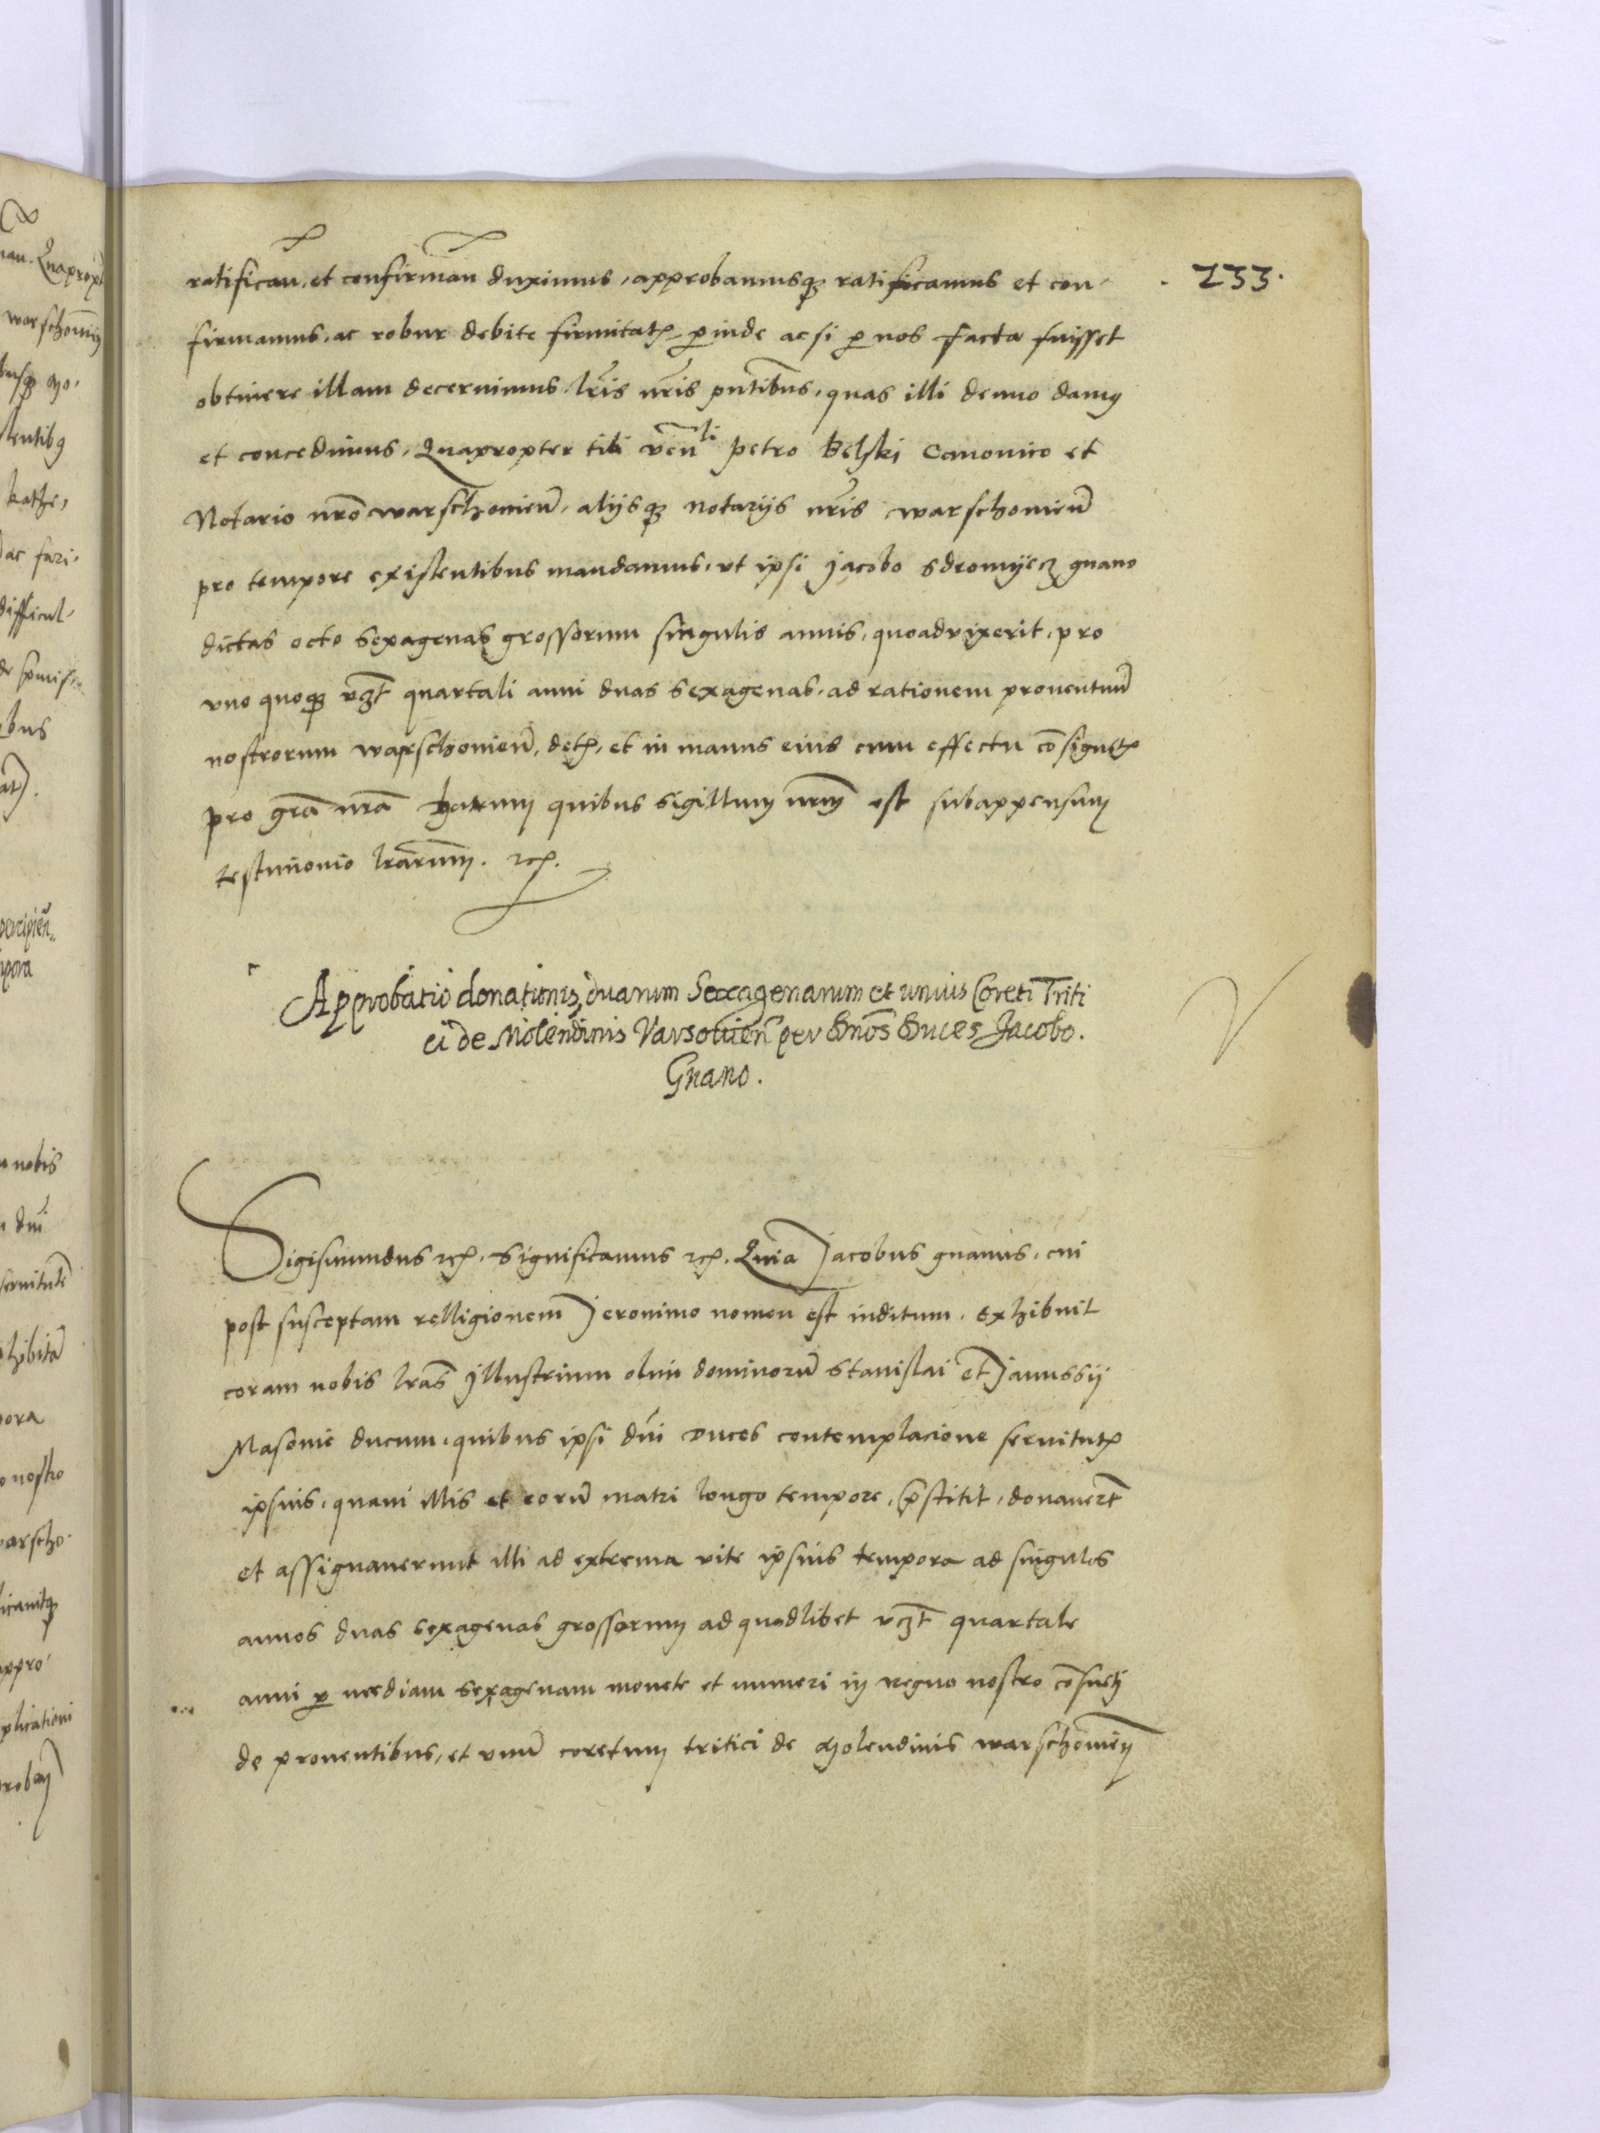 . 233.
ratifican̄. et confirman̄ duximus, approbamusq₃ ratificamus et con-
firmamus, ac robur debite firmitatꝭ ꝑinde ac si ꝑ nos facta fuisset
obtinere illam decernimus lr̄is nr̄is pn̄tibus, quas illi denuo damꝰ
et concedimus, Quapropter tibi ven̄li petro Belski Canonico et
Notario nr̄o warschouien̄, alijsq₃ notarijs nr̄is warschouien̄
pro tempore existentibus mandamus, vt ipsi Jacobo sdromijecz gnano
dictas octo sexagenas grossorum singulis annis, quoadvixerit, pro
vno quoq₃ vꝫt quartali anni duas sexagenas, ad rationem prouentuum̄
nostrorum warschouien̄, detꝭ, et in manus eius cum effectu cōsignetꝭ
pro gr̄a nr̄a harum quibus sigillum nr̄m est subappensum
testimonio lrārum. ꝛcꝭ.
Approbatio donationis duarum Sexagenarum et unius Coreti Triti
ci de Molendinis Varsovien̄ per Dnōs Duces Jacobo.
Gnano.
Sigismundus ꝛcꝭ. Significamus ꝛcꝭ. Quia Jacobus gnanus, cui
post susceptam relligionem Jeronimo nomen est inditum, exhibuit
coram nobis lrās Jllustrium olim dominorū Stanislai et Janussij
Masouie ducum, quibus ipsi dn̄i duces contemplacione seruitutꝭ
ipsius, quam illis et eorū matri longo tempore, p̄stitit, donauer̄t
et assignauerunt illi ad extrema vite ipsius tempora ad singulos
annos duas sexagenas grossorum ad quodlibet vꝫt quartale
anni ꝑ mediam sexagenam monete et numeri in regno nostro cōsueti
de prouentibus, et vnū coretum tritici de Molendinis warschouien̄